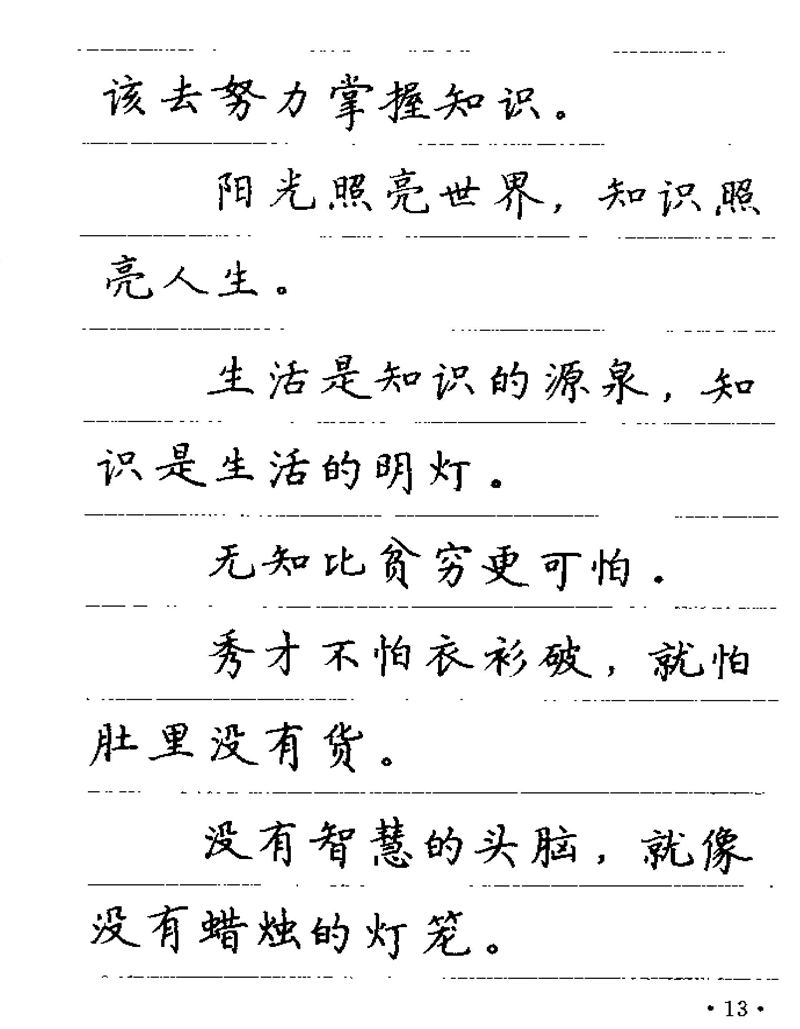 该去努力掌握知识。
阳光照亮世界，知识照
亮人生。
生活是知识的源泉，知
识是生活的明灯。
无知比贫穷更可怕。
秀才不怕衣衫破，就怕
肚里没有货。
没有智慧的头脑，就像
没有蜡烛的灯笼。
·13·